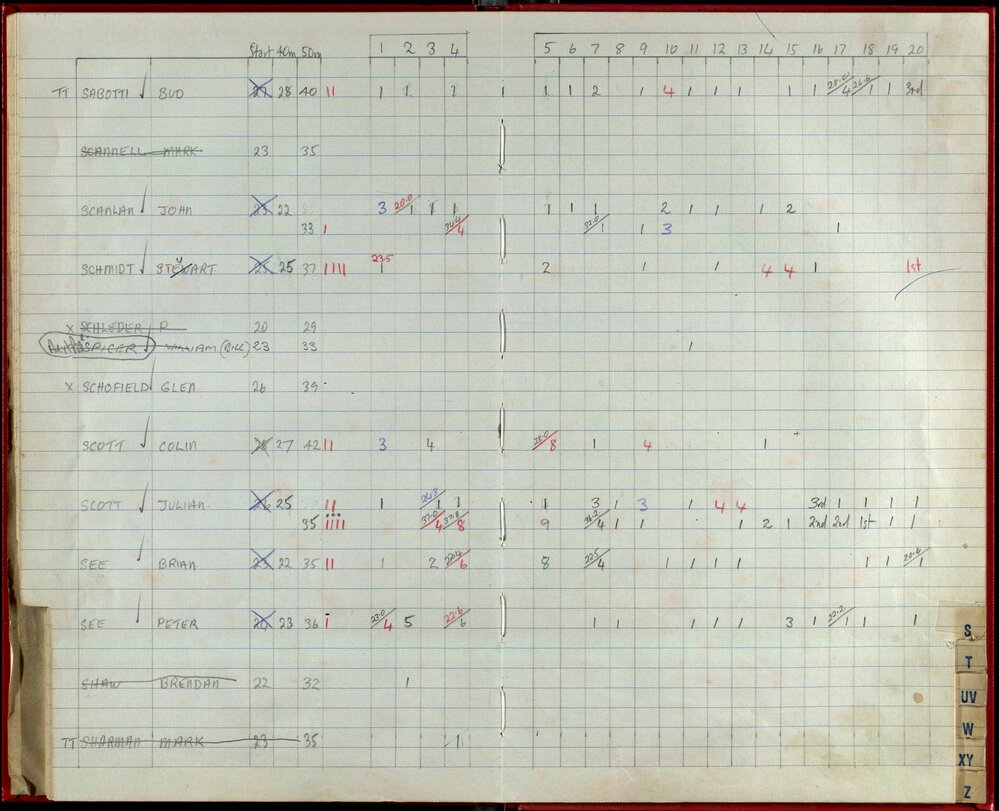 Start 40m 50m 1 2 3 4 5 6 7 8 9 10 11 12 13 14 15 16 17 18 19 20
TT SABOTTI BUD 27 28 40 11 1 1 1 1 1 1 2 1 4 1 1 1 1 1 28.0/4 26.6/1 1 3rd
SCANNELL MARK 23 35
SCANLAN JOHN 23 22 3 20.0/1 1 1 1 1 1 2 1 1 1 2
33 1 34.4/4 32.0/1 1 3 1
SCHMIDT STEWART 25 25 37 1111 23.5/1 2 1 1 4 4 1 1st
X SCHLEDER R 20 29
SPICER WILLIAM (BILL) 23 33 1
X SCHOFIELD GLEN 26 39
SCOTT COLIN 27 42 11 3 4 28.0/8 1 4 1
SCOTT JULIAN 26 25 11 1 24.8/1 1 1 3 1 3 1 4 4 3rd 1 1 1 1
35 1111 37.0/4 37.8/8 9 36.2/4 1 1 1 2 1 2nd 2nd 1st 1 1
SEE BRIAN 23 22 35 11 1 2 22.4/6 8 22.5/4 1 1 1 1 1 1 20.4/1
SEE PETER 21 23 36 1 23.0/4 5 22.6/6 1 1 1 1 1 3 1 22.2/1 1 1
SHAW BRENDAN 22 32 1
TT SHARMAN MARK 23 35 1
S
T
UV
W
XY
Z